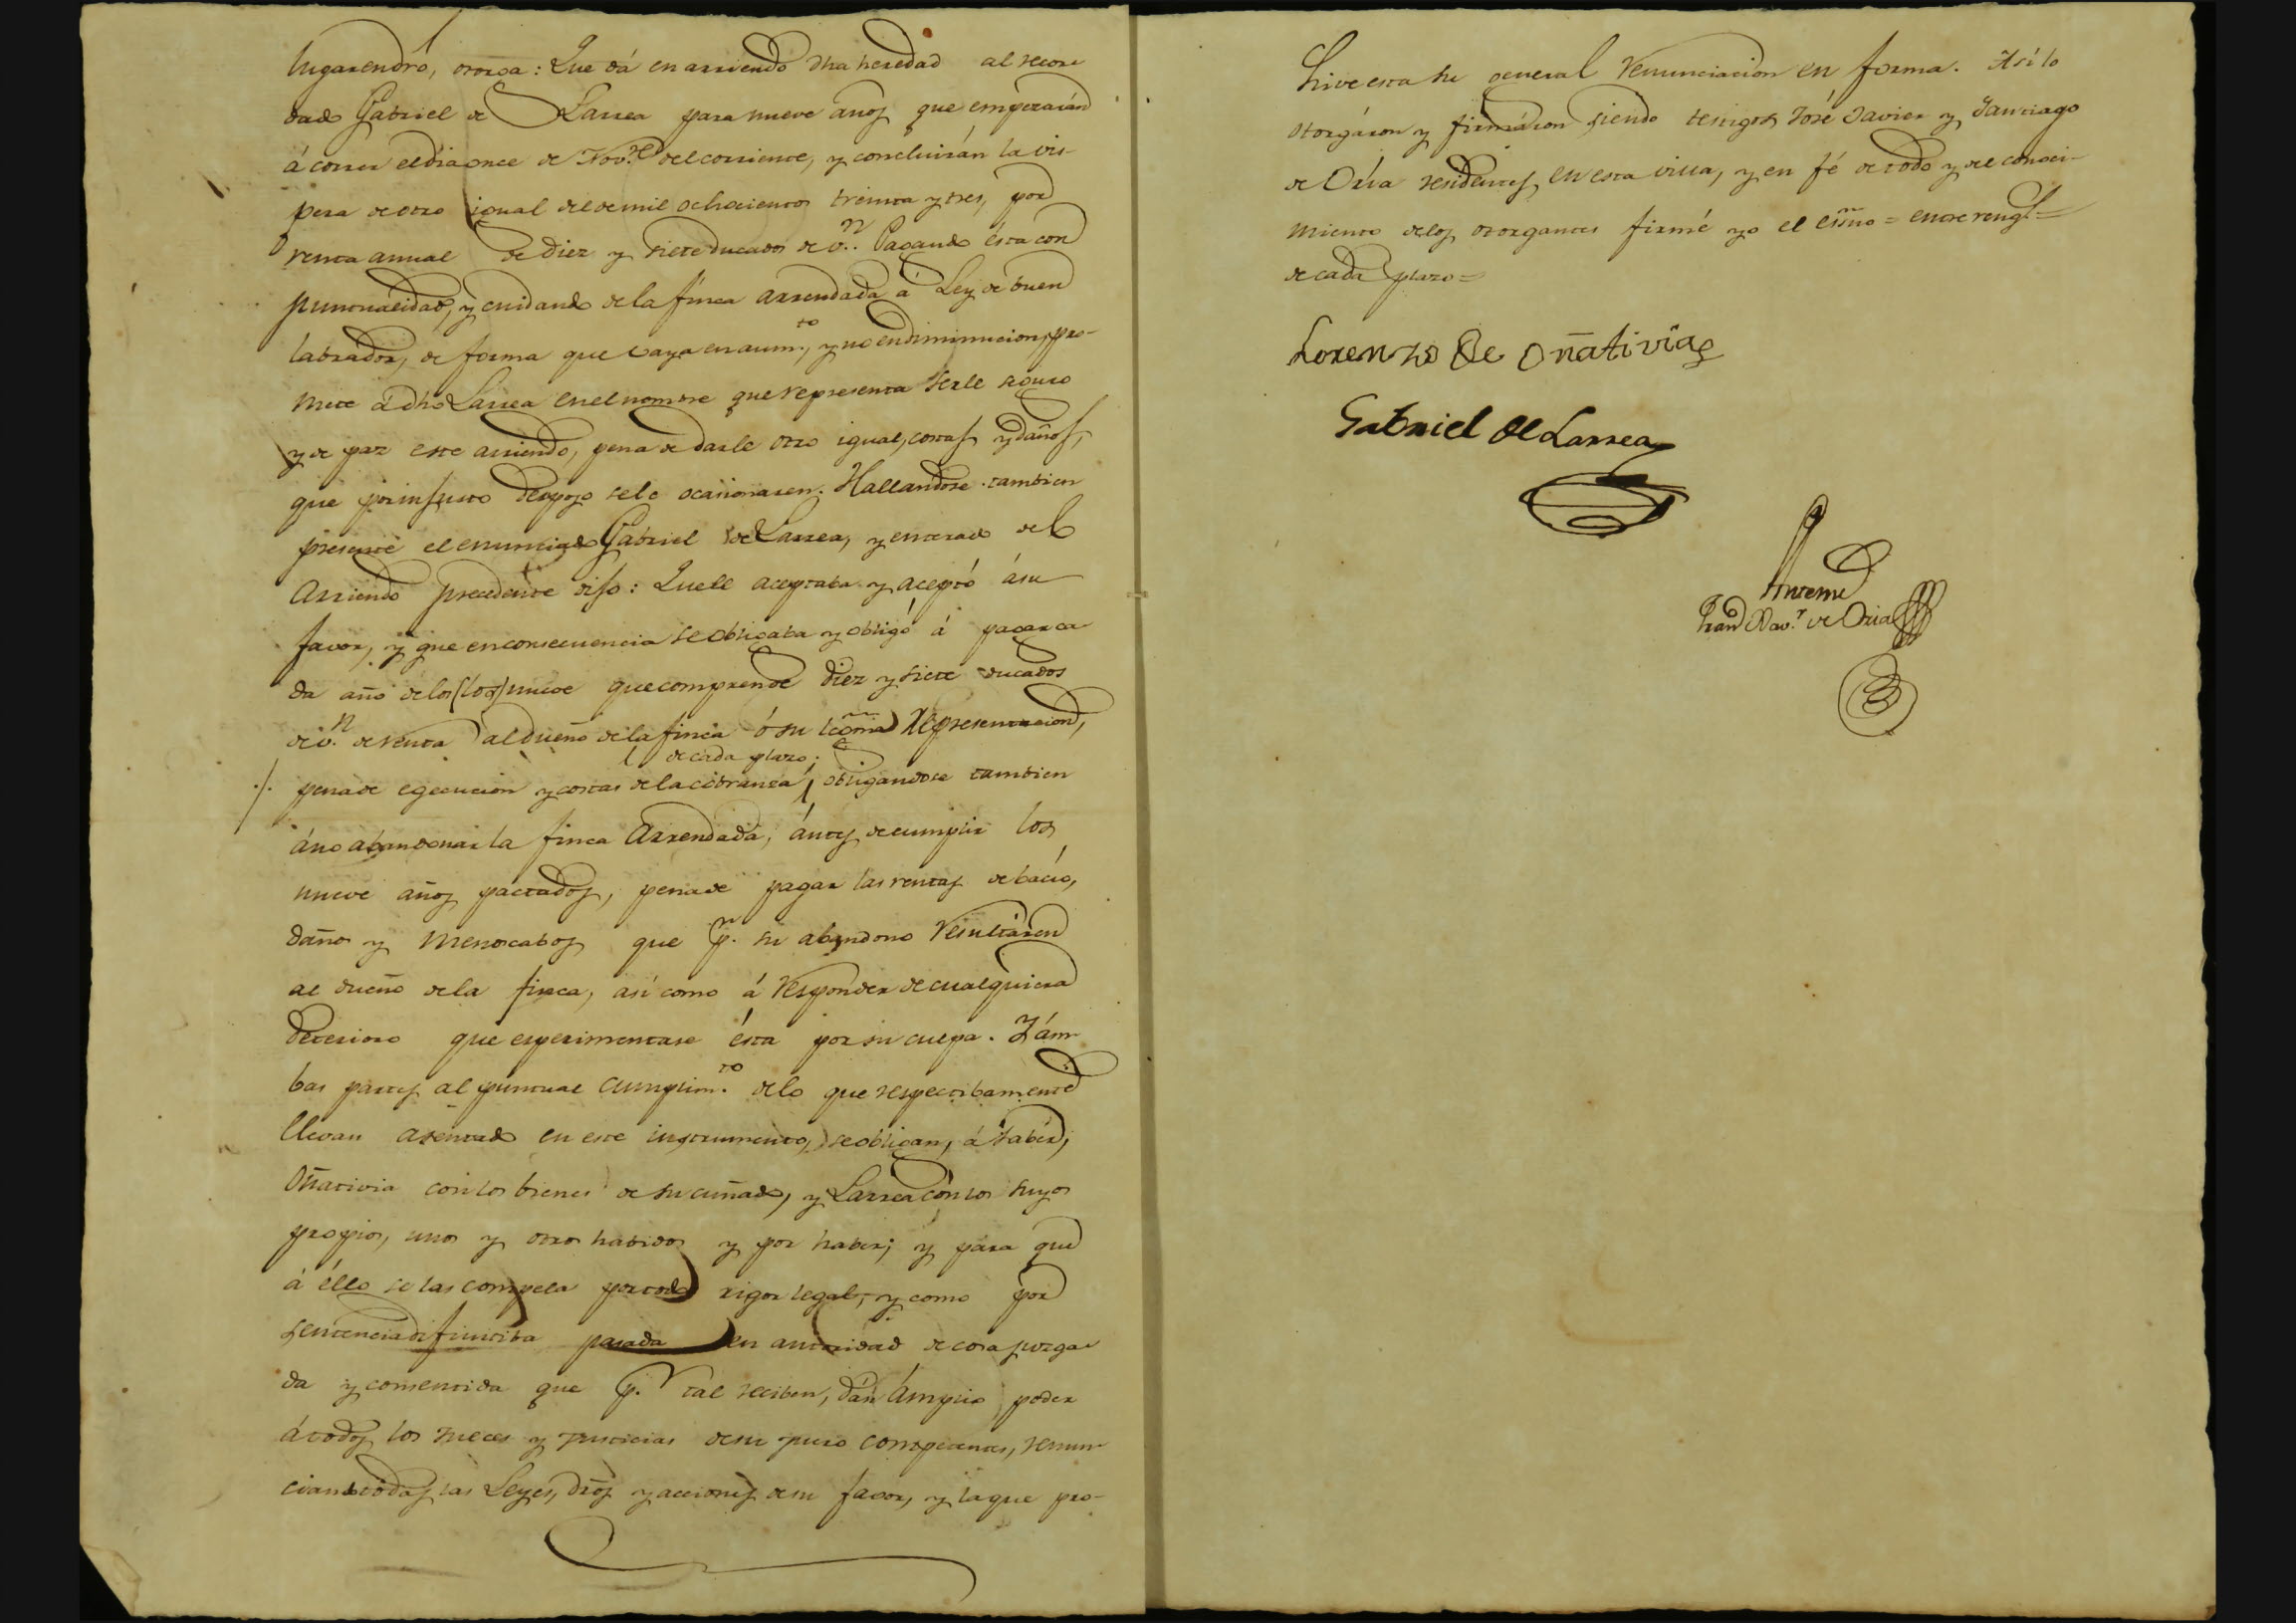 lugarendrô, otorga: Que dá en arriendo dha heredad al recor-
dado Gabriel de Larrea para nueve años que empezarán
á correr el dia once de Nov.re del corriente, y concluirán la vis-
pera de otro igual del de mil ochocientos treinta y tres, por
renta anual de diez y siete ducados de v.n Pagando ésta con
puntualidad, y cuidando de la finca arrendada á Ley de buen
labrador, de forma que vaya en aum.to, y no en diminucion, pro-
mete á dho Larrea en el nombre que representa serle seguro
y de paz este arriendo, pena de darle otro igual, costas y daños,
que por injusto despojo se le ocasionaren. Hallandose tambien
presente el enunciado Gabriel de Larrea, y enterado del
Arriendo precedente dijo: Que le aceptaba y aceptó á su
favor, y que en consecuencia se obligaba y obligó á pagar ca-
da año de los (los) nueve que comprende diez y siete ducados
de v.n de renta al dueño de la finca ó su legma Representacion,
de cada plazo;
pena de egecucion y costas de la cobranza, obligandose tambien
á no abandonar la finca Arrendada, ántes de cumplir los
nueve años pactados, pena de pagar las rentas de bacío,
daños y menoscabos que p.r su abandono resultaren
al dueño de la finca, asi como á responder de cualquiera
deterioro que esperimentase ésta por su culpa. Y ám-
bas partes al puntual cumplim.to de lo que respectibamente
llevan asentado en este instrumento, se obligan, á saber,
Oñativia con los bienes de su cuñado, y Larrea con los suyos
propios, unos y otros habidos y por haber; y para que
á éllo se las compela por todo rigor legal, y como por
sentencia difinitiba pasada en autoridad de cosa juzga-
da y consentida que p.r tal reciben, dán ámplio poder
á todos los Jueces y Justicias de su fuero competentes, renun-
ciando todas las Leyes, dros y acciones de su favor, y la que pro-
hive esta su general renunciacion en forma. Asi lo
otorgáron y firmáron siendo testigos José Javier y Santiago
de Oria residentes en esta villa, y en fé de todo y del conoci-
miento de los otorgantes firmé yo el essno = entre rengs =
de cada plazo =
Lorenzo de Oñativia
Gabriel de Larrea
Antemi
Fran.co Xav.r de Oria